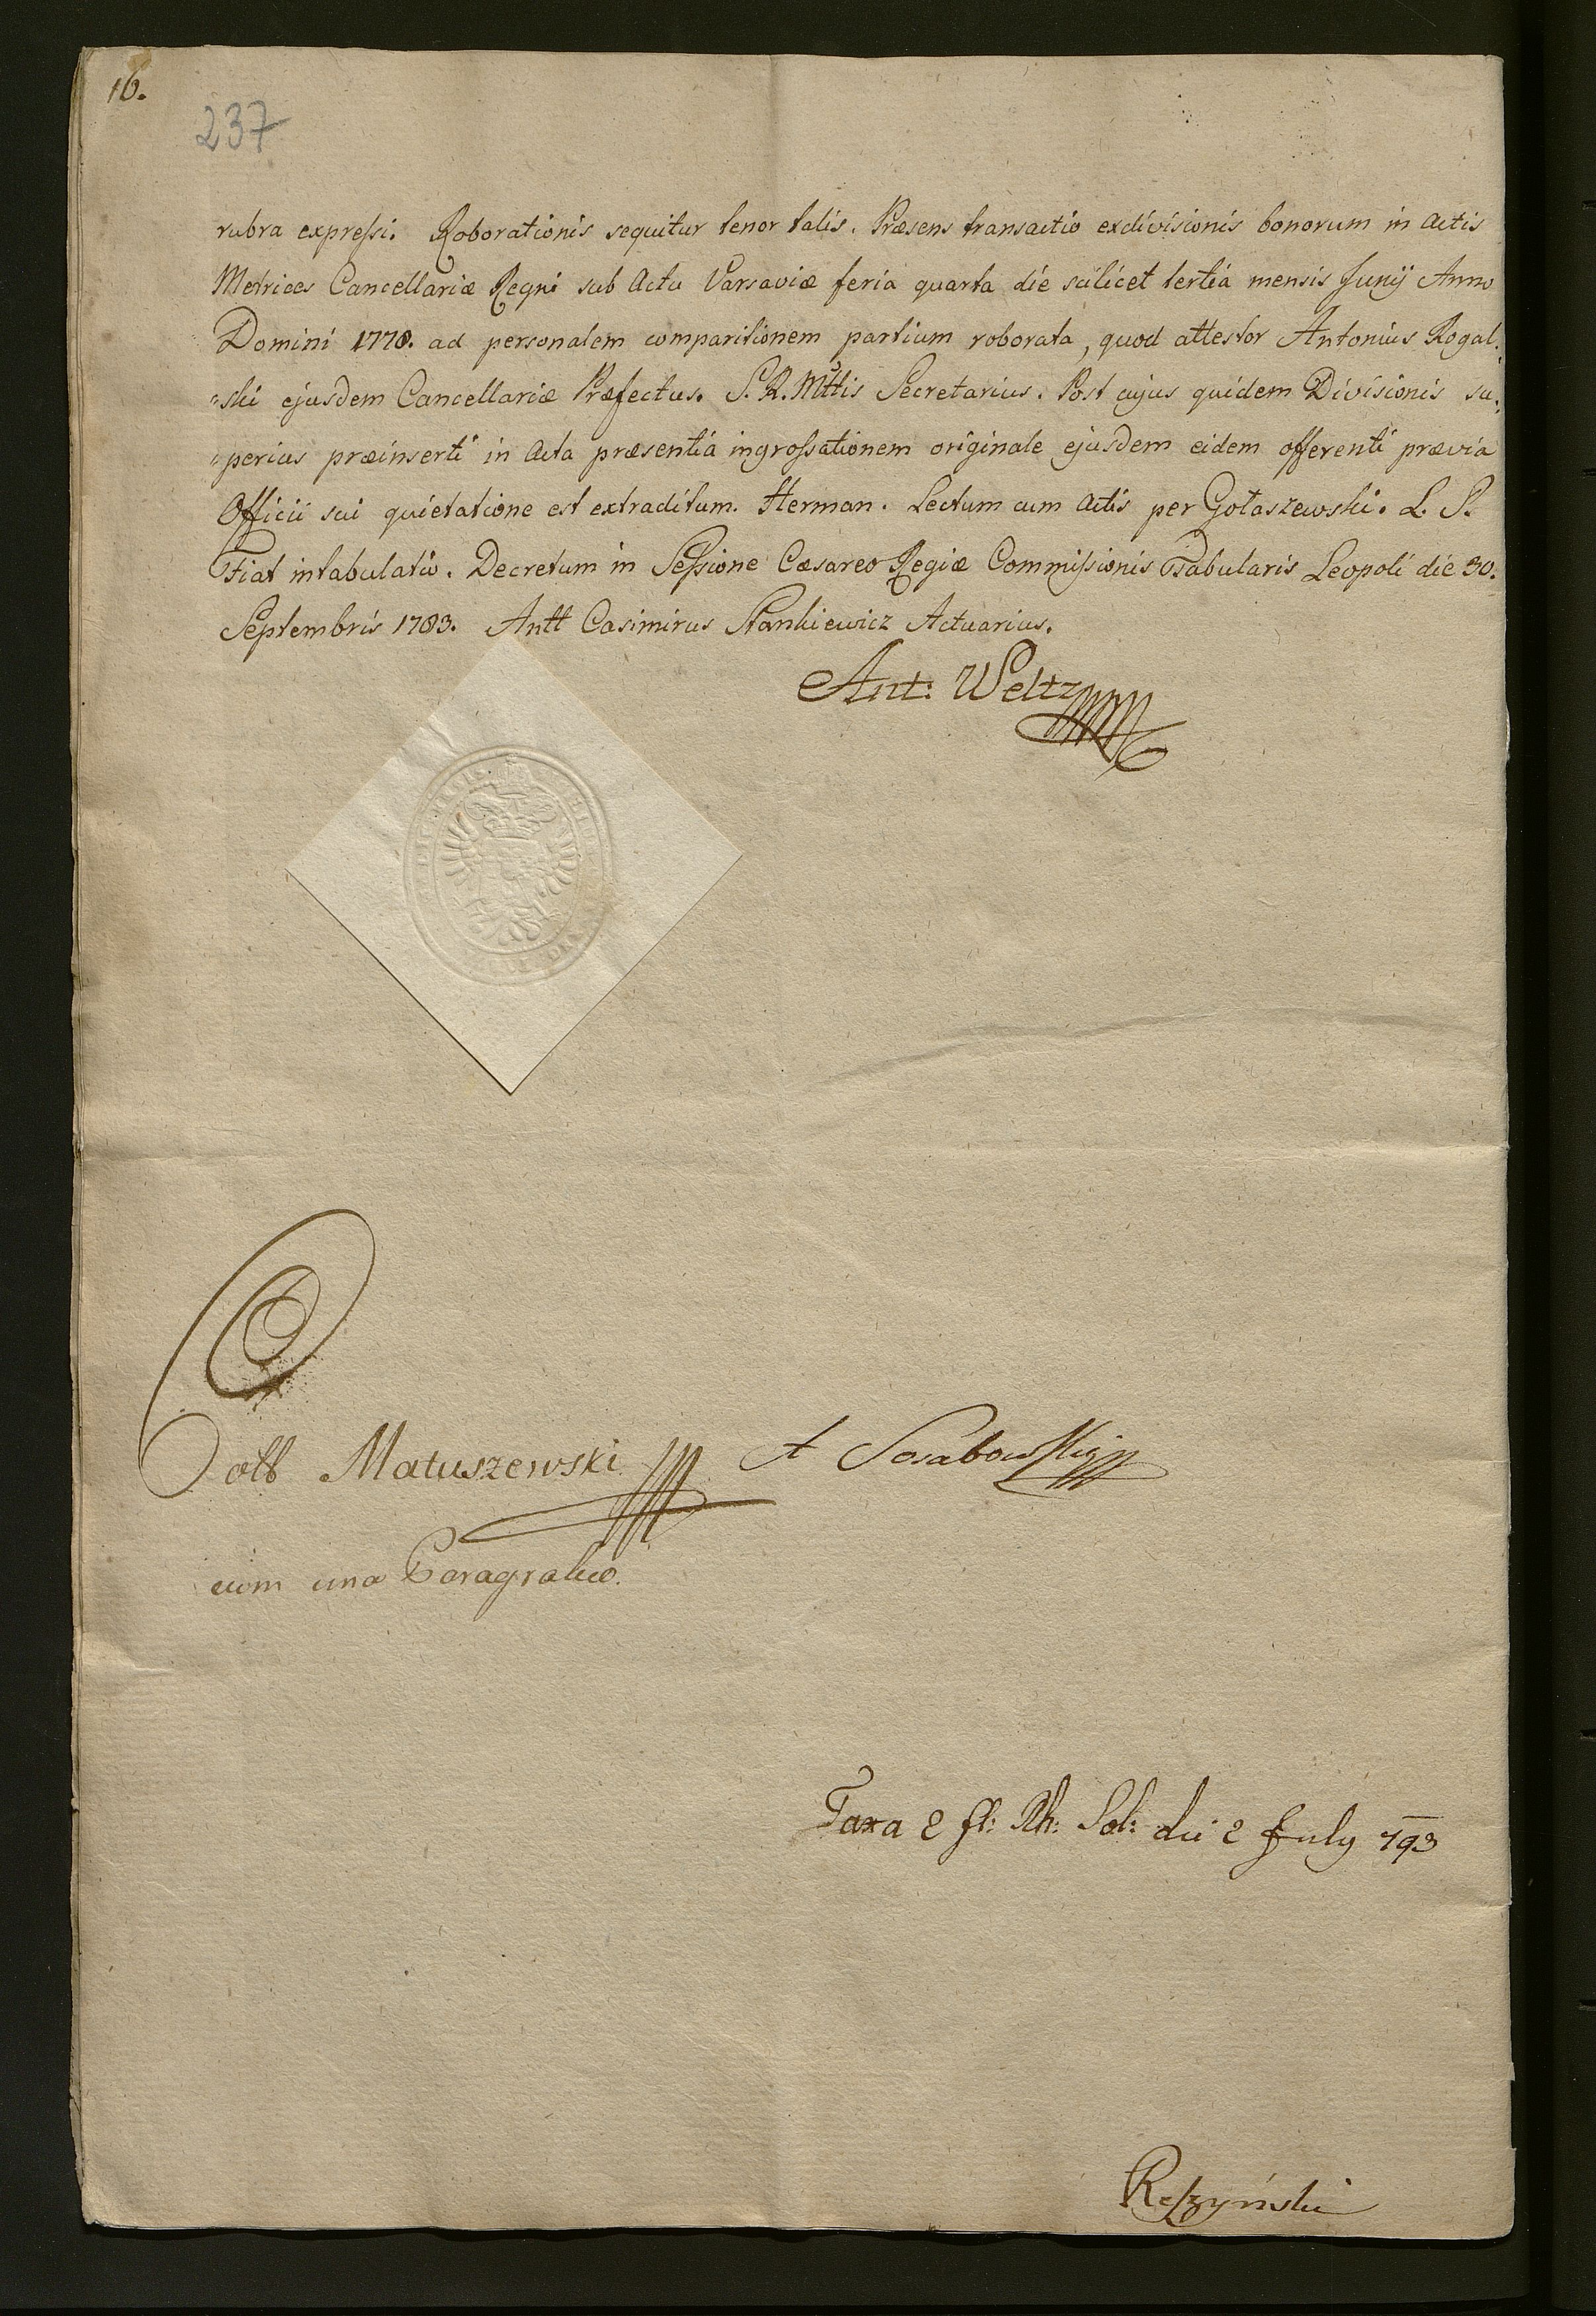 16.
237
rubra expressi. Roborationis sequitur tenor talis. Præsens transactio exdivisionis bonorum in Actis
Metrices Cancellariæ Regni sub Actu Varsaviæ feria quarta die scilicet tertia mensis Junij Anno
Domini 1778. ad personalem comparitionem partium roborata, quod attestor Antonius Rogal:
"ski ejusdem Cancellariæ Præfectus. S. R. Mttis Secretarius. Post cujus quidem Divisionis su:
"perius præinserti in Acta præsentia ingrossationem originale ejusdem eidem offerenti prævia
Officii sui quietatione est extraditum. Herman. Lectum cum Actis per Gołaszewski. L. S.
Fiat intabulatio. Decretum in Sessione Cæsareo Regiæ Commissionis Tabularis Leopoli die 30.
Septembris 1783. Antt Casimirus Stankiewicz Actuarius.
Ant: Weltz
Coll Matuszewski A Sosabowski
cum una Paragrapho.
Taxa 2 fl: Rh: Sol: die 2 July 793